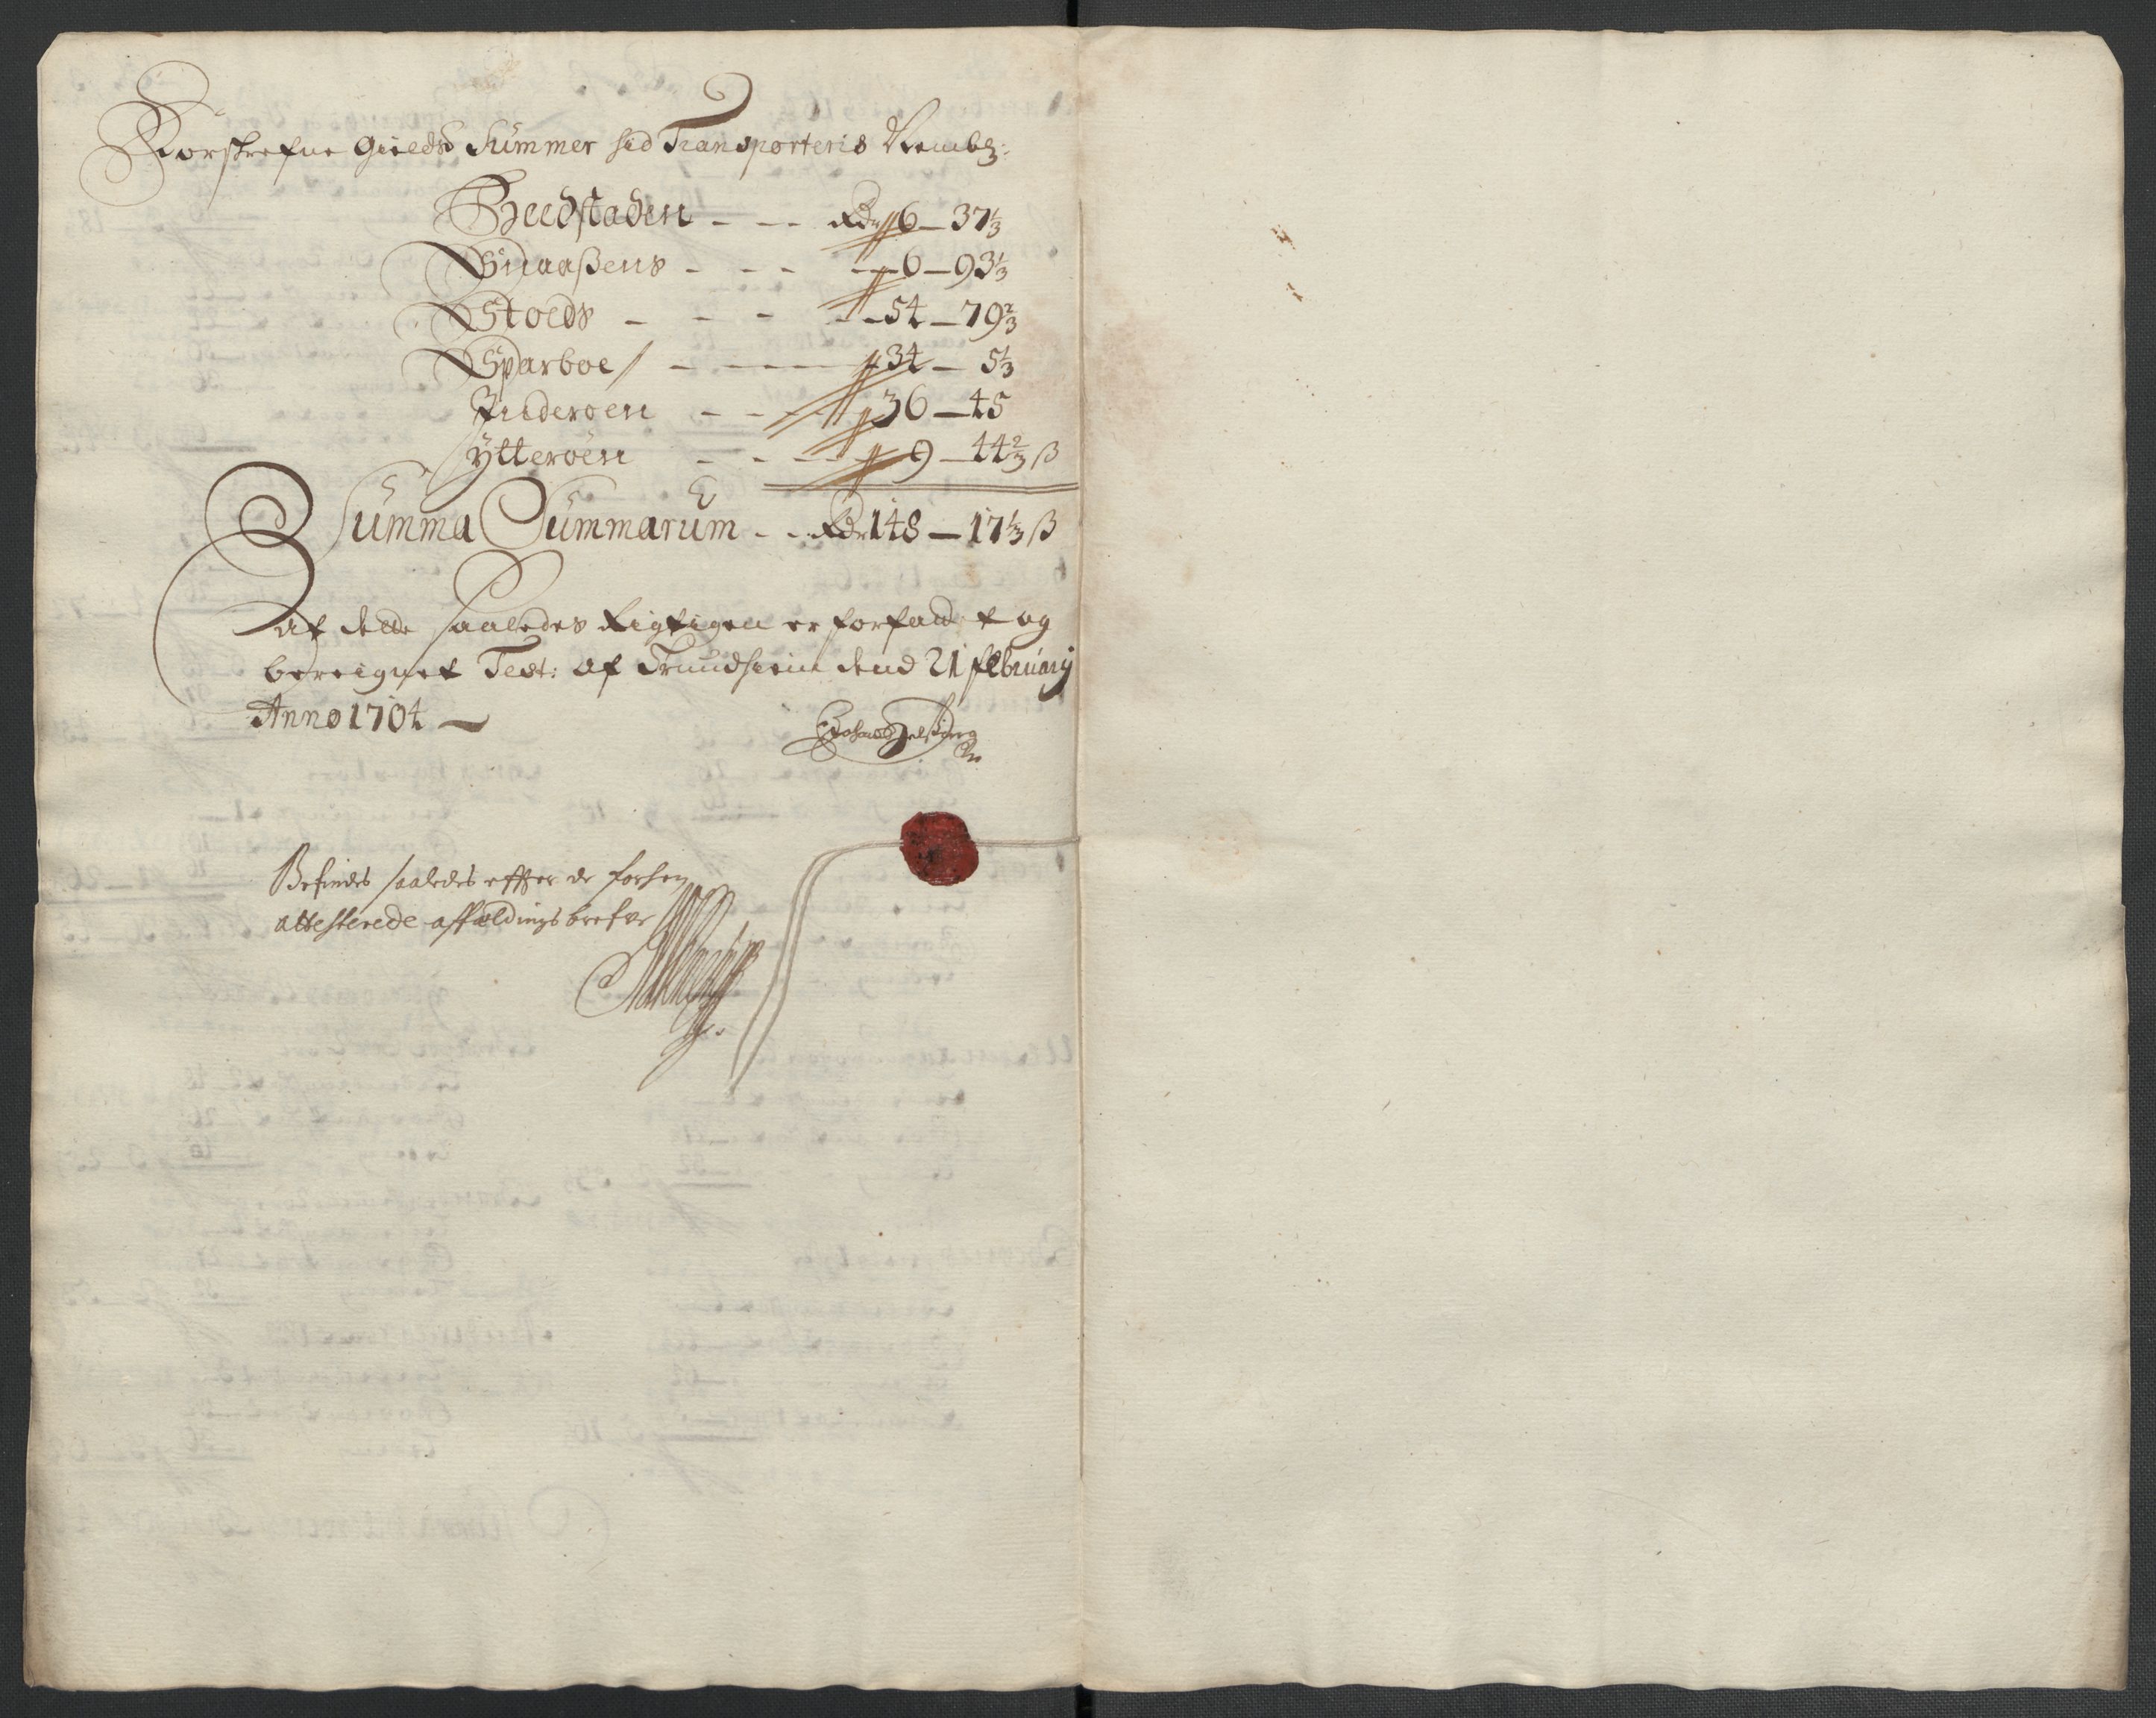 Forskrefne Gields Summer hid Transporteris Nembl:
Beedstaden - - - Rdr 6 - 37 1/3
Snaaßens - - - - 6 - 93 1/3
Stoeds - - - - 54 - 79 2/3
Sparboe / - - - - 34 - 5 1/3
Inderøen - - - 36 - 45
Ytterøen - - - 9 - 44 2/3 ß
Summa Summarum - - Rdr 148 - 17 1/3 ß
At dette saaledes Rigtigen er forfattet og
bereignet Test: af Trundhiem dend 21 february
Anno 1704
Befindes saaledes efter de forhen
attesterede affældings brefve